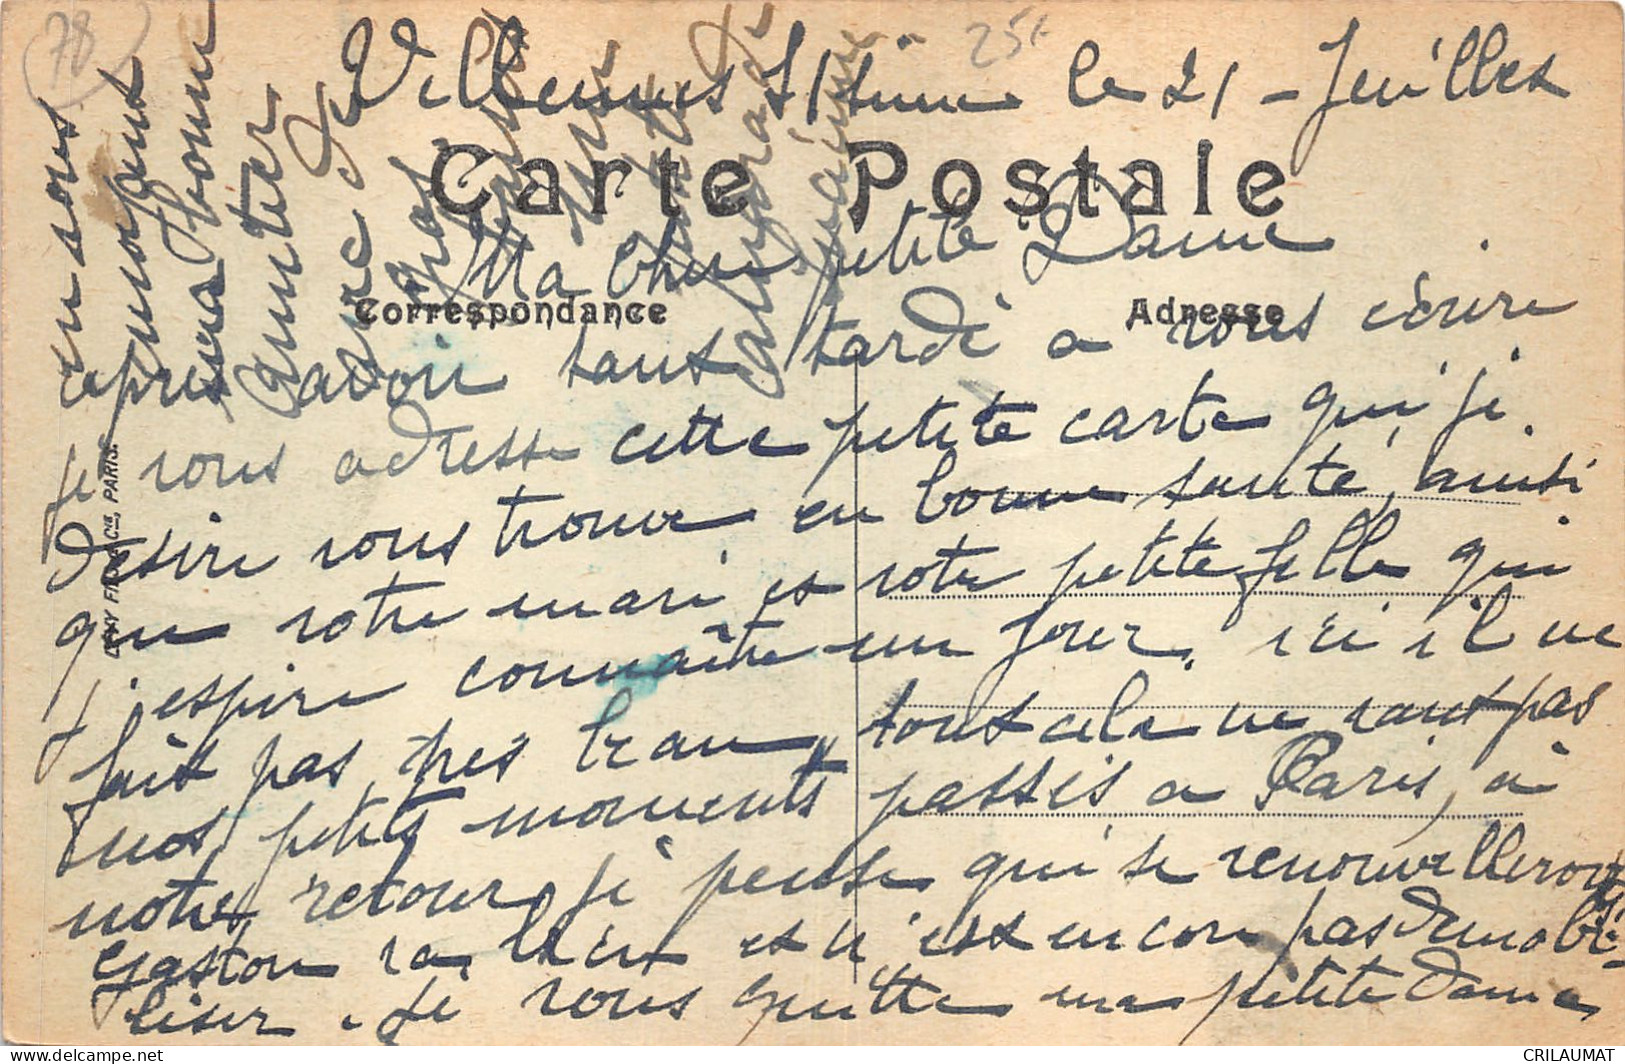 78
25f
Villennes S/Seine le 21 - Juilles
Carte Postale
Ma Chere petite Dame
Correspondance
Adresse
avoir tant tardé a vous écrire
je vous adresse cette petite carte qui je
désire vous trouve en bonne santé, ainsi
que votre mari, et votre petite fille qui
j'espire connaître un jour. ici il ne
fait pas tres beau, tout cela ne vaut pas
nos petits moments passés a Paris, à
notre retour je pense qui se renouvelleront
Gaston va bien et n'est encore pas demobi-
liser. Je vous quitte ma petite Dame
en vous
apres
LEVY FILS & Cie, PARIS.
CRILAUMAT